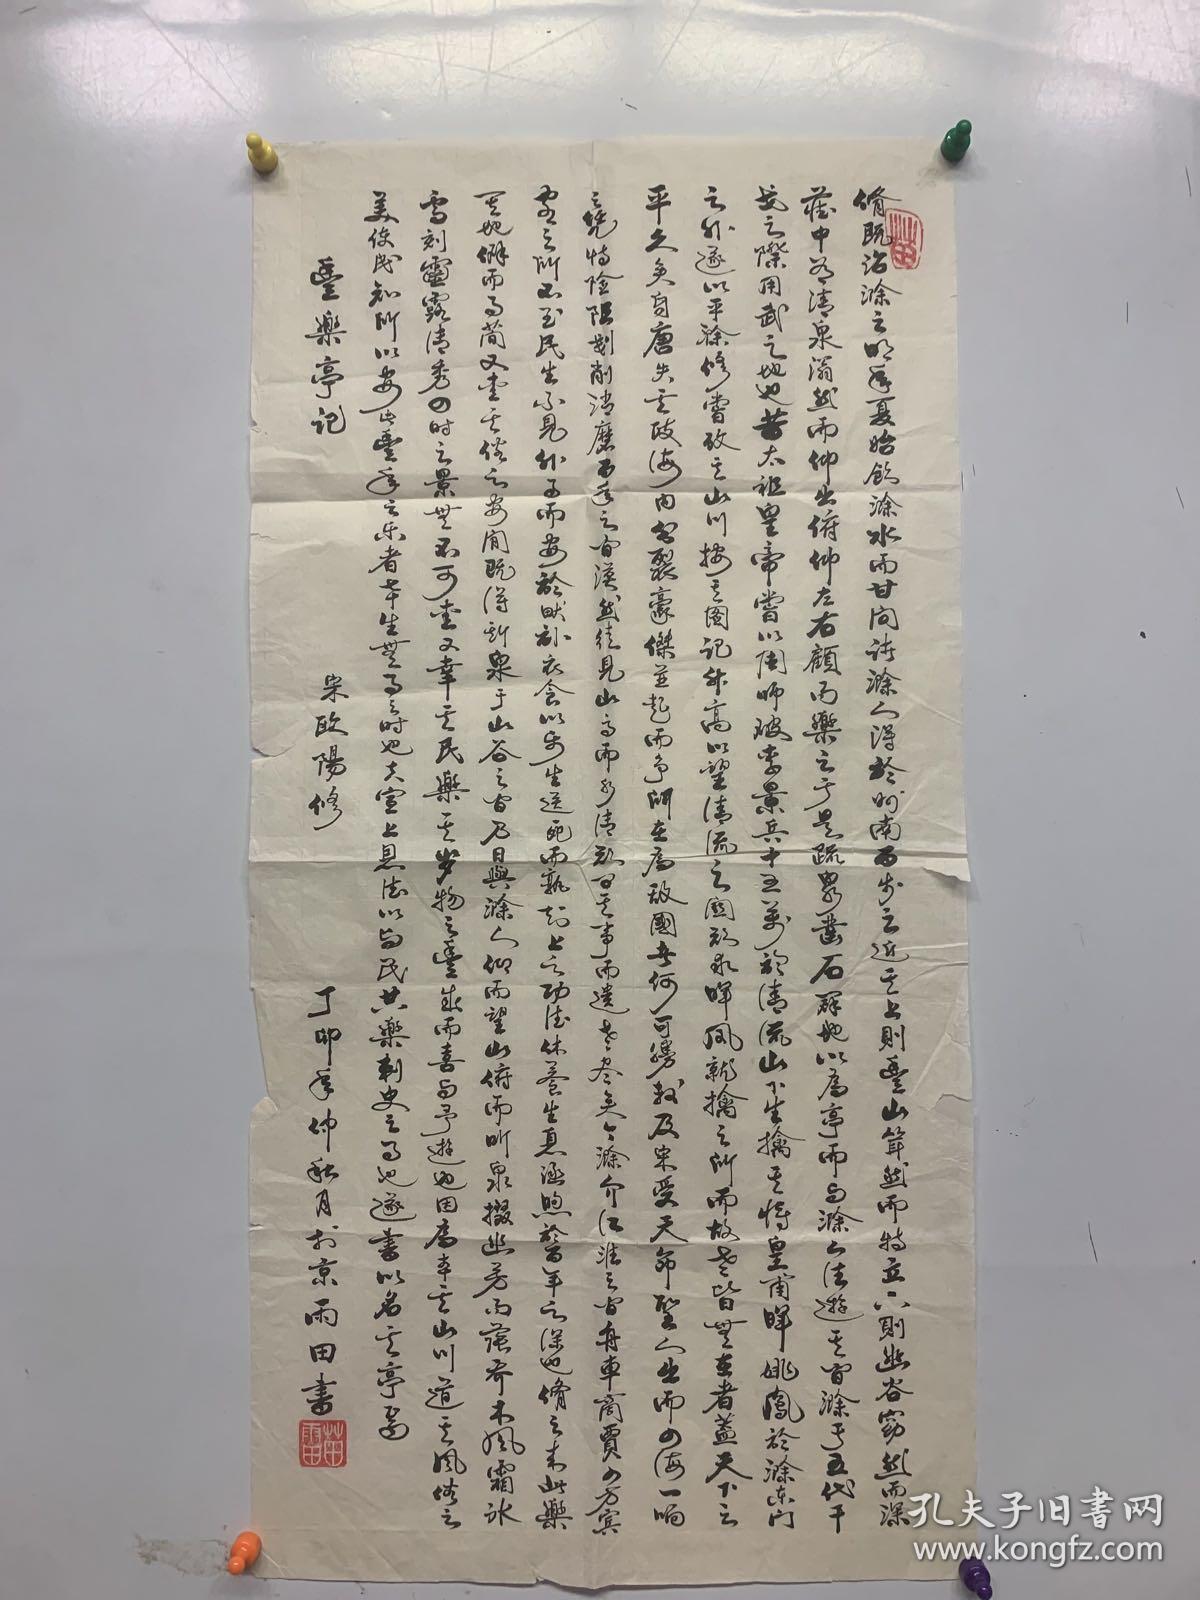 脩既治滁之明年夏始飲滁水而甘問諸滁人得於州南百步之近其上則豐山聳然而特立下則幽谷窈然而深
藏中有清泉滃然而仰出俯仰左右顧而樂之于是疏泉鑿石闢地以為亭而與滁人往遊其間滁于五代干
戈之際用武之地也昔太祖皇帝嘗以周師破李景兵十五萬於清流山下生擒其將皇甫暉姚鳳於滁東門
之外遂以平滁修嘗考其山川按其圖記升高以望清流之關欲求暉鳳就擒之所而故老皆無在者蓋天下之
平久矣自唐失其政海內分裂豪傑並起而爭所在為敵國者何可勝數及宋受天命聖人出而四海一嚮
之憑恃險阻剗削消磨百年之間漠然徒見山高而水清欲問其事而遺老盡矣今滁介江淮之間舟車商賈四方賓
客之所不至民生不見外事而安於畎畝衣食以樂生送死而孰知上之功德休養生息涵煦於百年之深也脩之來此樂
其地僻而事簡又愛其俗之安閒既得斯泉于山谷之間乃日與滁人仰而望山俯而聽泉掇幽芳而蔭喬木風霜冰
雪刻露清秀四時之景無不可愛又幸其民樂其歲物之豐成而喜與予遊也因為本其山川道其風俗之
美使民知所以安此豐年之樂者幸生無事之時也夫宣上恩德以與民共樂刺史之事也遂書以名其亭焉
豐樂亭記 宋歐陽修 丁卯年仲秋月於京雨田書
孔夫子旧书网
www.kongfz.com